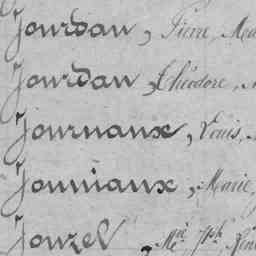 Jourdan, Pierre,
Jourdan, Théodore,
Journaux, Louis,
Jouniaux, Marie,
Jouzel, Mie Jph,